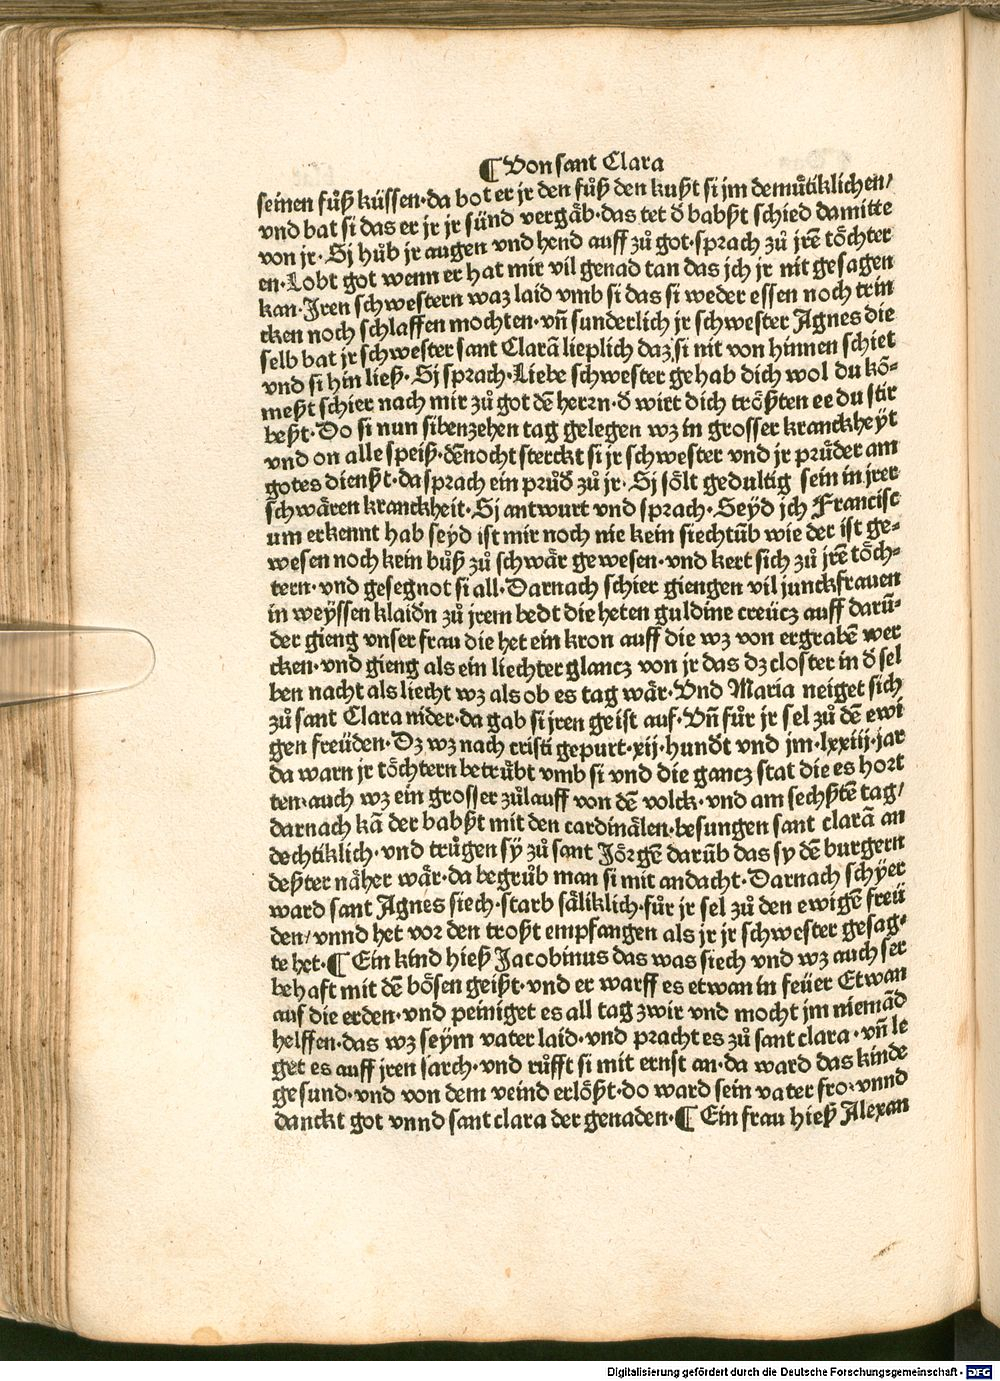 ¶ Von sant Clara
seinen fůß küssen·da bot er jr den fůß den kußt si jm demůtiklichen/
vnd bat si das er jr jr sünd vergäb·das tet ð babßt schied damitte
von jr·Sj hůb jr augen vnd hend auff zů got·sprach zů jrē töchter
en·Lobt got wenn er hat mir vil genad tan das jch jr nit gesagen
kan·Jren schwestern waz laid vmb si das si weder essen noch trin
cken noch schlaffen mochten·vn̄ sunderlich jr schwester Agnes die
selb bat jr schwester sant Clarā lieplich daz si nit von hinnen schiet
vnd si hin ließ·Sj sprach·Liebe schwester gehab dich wol du kō-
meßt schier nach mir zů got dē herrn·ð wirt dich trößten ee du stir
beßt·Do si nun sibenzehen tag gelegen wz in grosser kranckheÿt
vnd on alle speiß·dēnocht sterckt si jr schwester vnd jr průder am
gotes dienßt·da sprach ein průð zů jr·Sj sölt gedultig sein in jrer
schwären kranckheit·Sj antwurt vnd sprach·Seÿd jch Francisc
um erkennt hab seyd ist mir noch nie kein siechtūb wie der ist ge-
wesen noch kein bůß zů schwär gewesen·vnd kert sich zů jrē töch-
tern·vnd gesegnot si all·Darnach schier giengen vil junckfrauen
in weÿssen klaidn zů jrem bedt die heten guldine creücz auff darū-
der gieng vnser frau die het ein kron auff die wz von ergrabē wer
cken·vnd gieng als ein liechter glancz von jr das dz closter in ð sel
ben nacht als liecht wz als ob es tag wär·Vnd Maria neiget sich
zů sant Clara nider·da gab si jren geist auf·Vn̄ fůr jr sel zů dē ewi
gen freüden·Dz wz nach cristi gepurt·xij·hunðt vnd jm·lxxiij·jar
da warn jr töchtern betrůbt vmb si vnd die gancz stat die es hort
ten·auch wz ein grosser zůlauff von dē volck·vnd am sechßtē tag/
darnach kā der babßt mit den cardinälen·besungen sant clarā an
dechtiklich·vnd trůgen sÿ zů sant Jörgē darūb das sy dē burgern
deßter näher wär·da begrůb man si mit andacht·Darnach schÿer
ward sant Agnes siech·starb säliklich·fůr jr sel zů den ewigē freü
den/vnnd het vor den troßt empfangen als jr jr schwester gesag-
te het·¶ Ein kind hieß Jacobinus das was siech vnd wz auch ser
behaft mit dē bösen geißt·vnd er warff es etwan in feüer Etwan
auf die erden·vnd peiniget es all tag zwir vnd mocht jm niemād
helffen·das wz seÿm vater laid·vnd pracht es zů sant clara·vn̄ le
get es auff jren sarch·vnd růfft si mit ernst an·da ward das kinde
gesund·vnd von dem veind erlößt·do ward sein vater fro·vnnd
danckt got vnnd sant clara der genaden·¶ Ein frau hieß Alexan
Digitalisierung gefördert durch die Deutsche Forschungsgemeinschaft - DFG